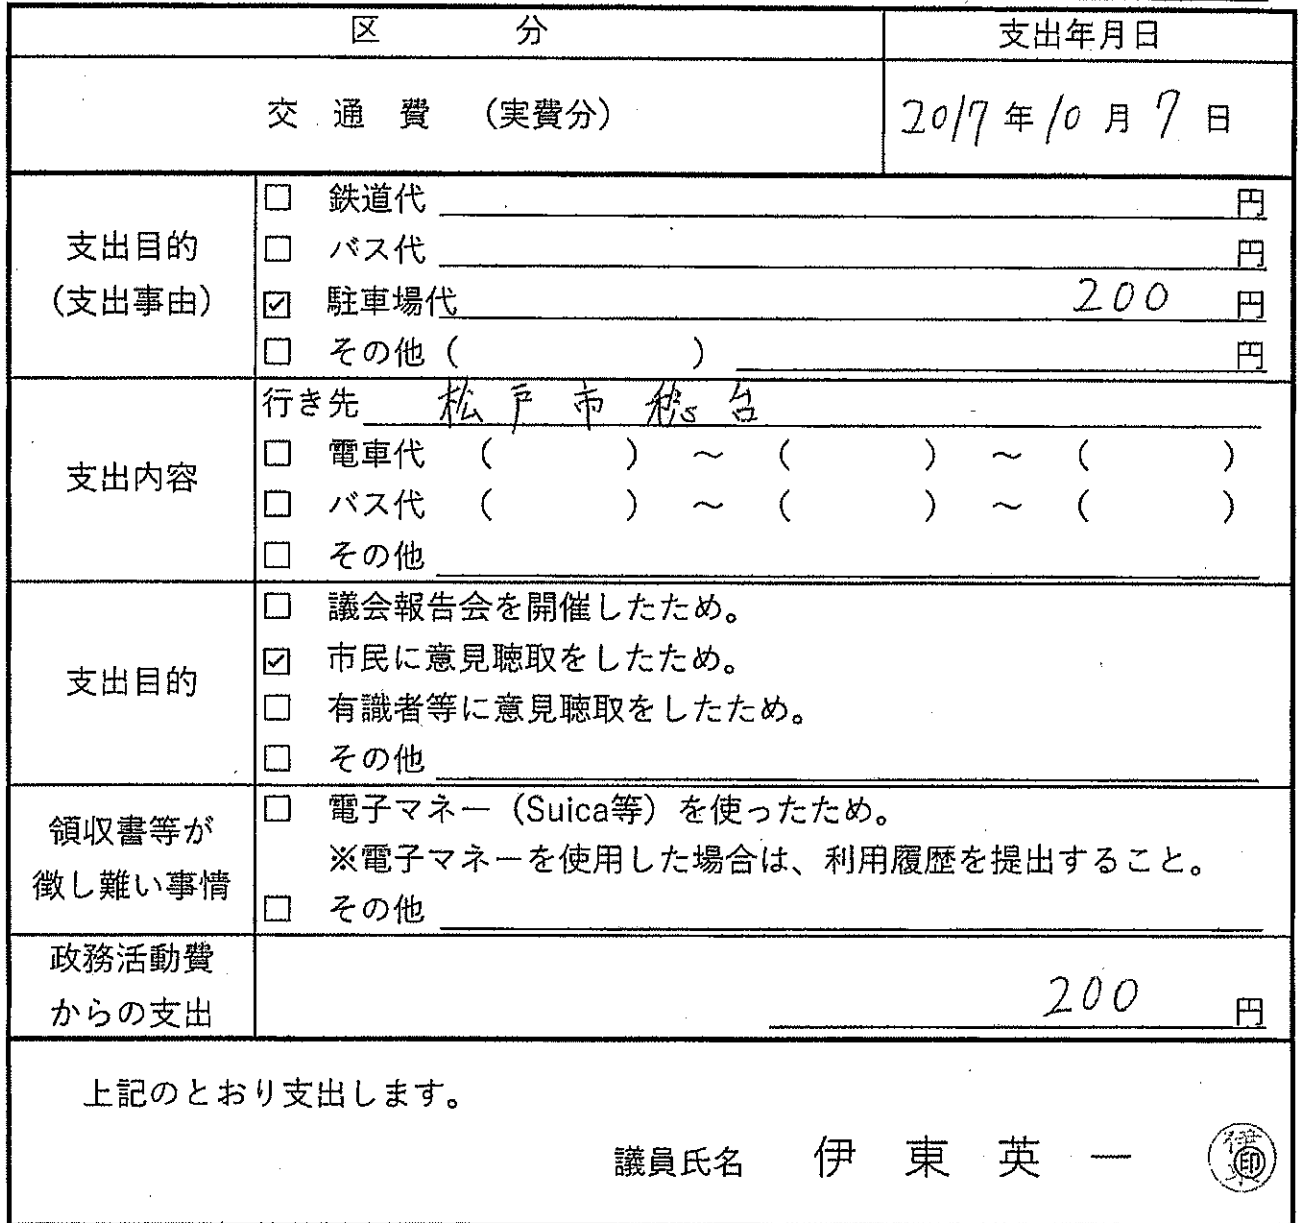 区 分 支出年月日
交 通 費 （実費分） 2017年10月7日
支出目的
（支出事由）
□ 鉄道代 円
□ バス代 円
☑ 駐車場代 200 円
□ その他（ ） 円
支出内容
行き先 松戸市 台
□ 電車代 （ ） ～ （ ） ～ （ ）
□ バス代 （ ） ～ （ ） ～ （ ）
□ その他
支出目的
□ 議会報告会を開催したため。
☑ 市民に意見聴取をしたため。
□ 有識者等に意見聴取をしたため。
□ その他
領収書等が
徴し難い事情
□ 電子マネー（Suica等）を使ったため。
※電子マネーを使用した場合は、利用履歴を提出すること。
□ その他
政務活動費
からの支出
200 円
上記のとおり支出します。
議員氏名 伊 東 英 一 ㊞